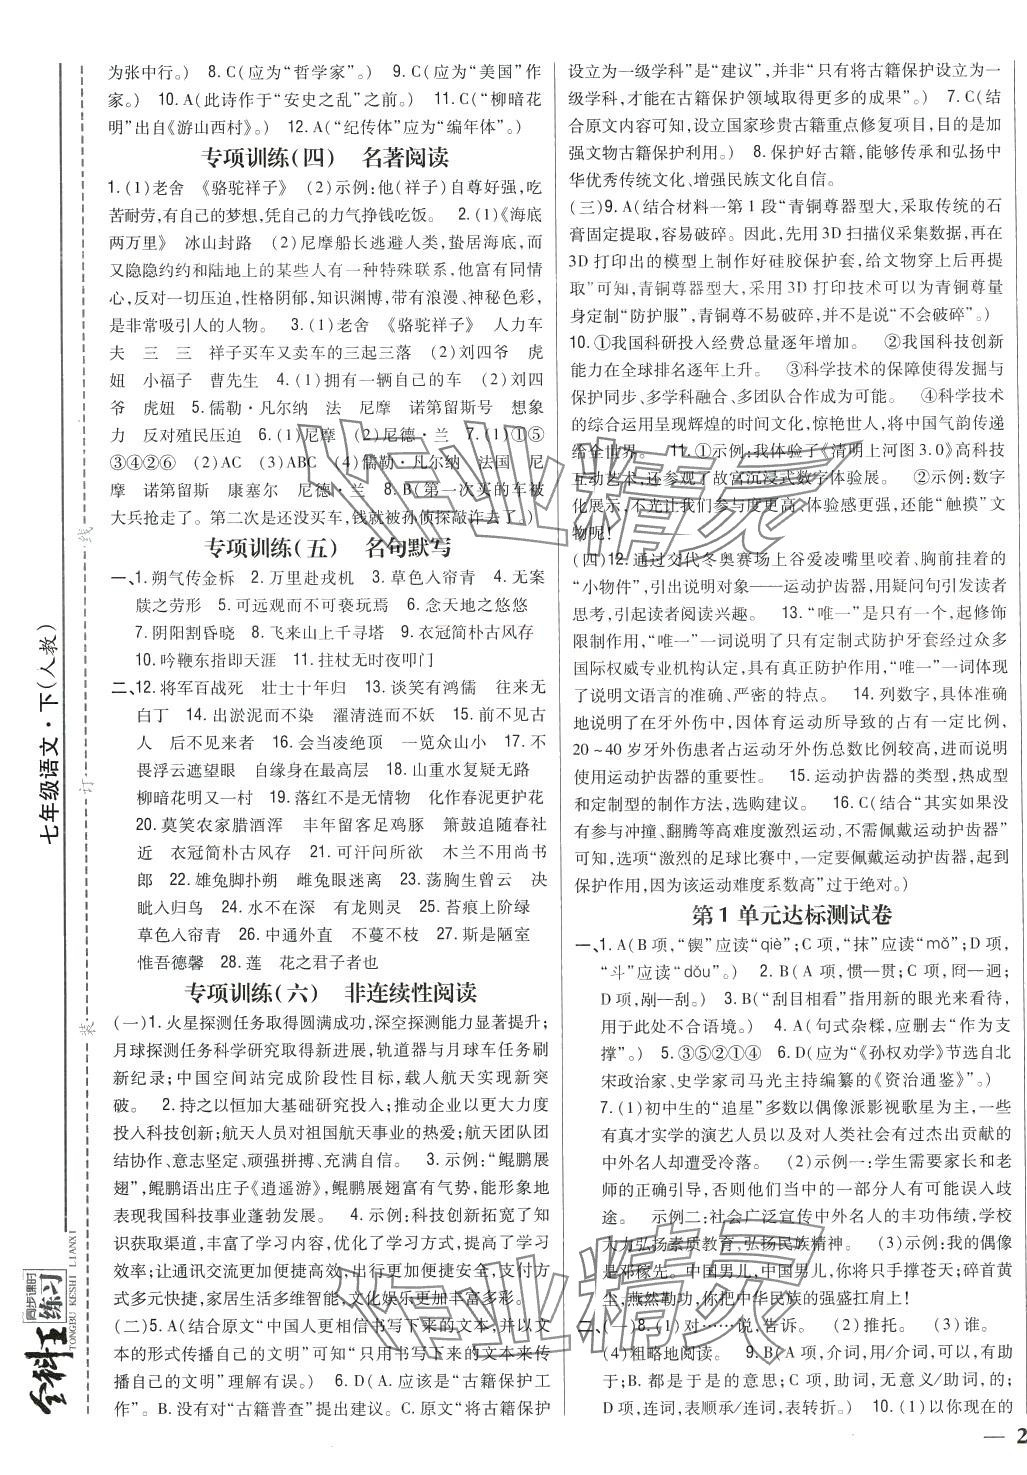 为张中行。)　8. C(应为“哲学家”。)　9. C(应为“美国”作
家。)　10. A(此诗作于“安史之乱”之前。)　11. C(“柳暗花
明”出自《游山西村》。)　12. A(“纪传体”应为“编年体”。)
专项训练(四)　名著阅读
1. (1)老舍　《骆驼祥子》　(2)示例:他(祥子)自尊好强,吃
苦耐劳,有自己的梦想,凭自己的力气挣钱吃饭。　2. (1)《海底
两万里》　冰山封路　(2)尼摩船长逃避人类,蛰居海底,而
又隐隐约约和陆地上的某些人有一种特殊联系,他富有同
情心,反对一切压迫,性格阴郁,知识渊博,带有浪漫、神秘色彩,
是非常吸引人的人物。　3. (1)老舍　《骆驼祥子》　人力车
夫　三　三　祥子买车又卖车的三起三落　(2)刘四爷　虎
妞　小福子　曹先生　4. (1)拥有一辆自己的车　(2)刘四
爷　虎妞　5. 儒勒·凡尔纳　法　尼摩　诺第留斯号　想象
力　反对殖民压迫　6. (1)尼摩　(2)尼德·兰　7. (1)①⑤
③④②⑥　(2)AC　(3)ABC　(4)儒勒·凡尔纳　法国　尼
摩　诺第留斯　康塞尔　尼德·兰　8. B(第一次买的车被
大兵抢走了。第二次是还没买车,钱就被孙侦探敲诈去了。)
专项训练(五)　名句默写
一、1. 朔气传金柝　2. 万里赴戎机　3. 草色入帘青　4. 无案
牍之劳形　5. 可远观而不可亵玩焉　6. 念天地之悠悠
7. 阴阳割昏晓　8. 飞来山上千寻塔　9. 衣冠简朴古风存
10. 吟鞭东指即天涯　11. 拄杖无时夜叩门
二、12. 将军百战死　壮士十年归　13. 谈笑有鸿儒　往来无
白丁　14. 出淤泥而不染　濯清涟而不妖　15. 前不见古
人　后不见来者　16. 会当凌绝顶　一览众山小　17. 不
畏浮云遮望眼　自缘身在最高层　18. 山重水复疑无路
柳暗花明又一村　19. 落红不是无情物　化作春泥更护花
20. 莫笑农家腊酒浑　丰年留客足鸡豚　箫鼓追随春社
近　衣冠简朴古风存　21. 可汗问所欲　木兰不用尚书
郎　22. 雄兔脚扑朔　雌兔眼迷离　23. 荡胸生曾云　决
眦入归鸟　24. 水不在深　有龙则灵　25. 苔痕上阶绿
草色入帘青　26. 中通外直　不蔓不枝　27. 斯是陋室
惟吾德馨　28. 莲　花之君子者也
专项训练(六)　非连续性阅读
(一)1. 火星探测任务取得圆满成功,深空探测能力显著提升;
月球探测任务科学研究取得新进展,轨道器与月球车任务刷
新纪录;中国空间站完成阶段性目标,载人航天实现新突
破。　2. 持之以恒加大基础研究投入;推动企业以更大力度
投入科技创新;航天人员对祖国航天事业的热爱;航天团队团
结协作、意志坚定、顽强拼搏、充满自信。　3. 示例:“鲲鹏展
翅”,鲲鹏语出庄子《逍遥游》,鲲鹏展翅富有气势,能形象地
表现我国科技事业蓬勃发展。　4. 示例:科技创新拓宽了知
识获取渠道,丰富了学习内容,优化了学习方式,提高了学习
效率;让通讯交流更加便捷,交通出行更加安全,支付方
式多元快捷,家居生活多维智能,文化娱乐多姿多彩。
(二)5. A(结合原文“中国人更相信书写下来的文本,并以文
本的形式传播自己的文明”可知“只用书写下来的文本来传
播自己的文明”理解有误。)　6. D(A. 应该是“古籍保护工
作”。B. 没有对“古籍普查”提出建议。C. 原文“将古籍保护
设立为一级学科”是“建议”,并非“只有将古籍保护设立为一
级学科,才能在古籍保护领域取得更多的成果”。)　7. C(结
合原文内容可知,设立国家珍贵古籍重点修复项目,目的是加
强文物古籍保护利用。)　8. 保护好古籍,能够传承和弘扬中
华优秀传统文化、增强民族文化自信。
(三)9. A(结合材料一第1段“青铜尊器型大,采取传统的石
膏固定提取,容易破碎。因此,先用3D扫描仪采集数据,再在
3D打印出的模型上制作好硅胶保护套,给文物穿上后再提
取”可知,青铜尊器型大,采用3D打印技术可以为青铜尊量
身定制“防护服”,青铜尊不易破碎,并不是说“不会破碎”。)
10. ①我国科研投入经费总量逐年增加。　②我国科技创新
能力在全球排名逐年上升。　③科学技术的保障使得发掘与
保护同步、多学科融合、多团队合作成为可能。　④科学技术
的综合运用呈现辉煌的时间文化,惊艳世人,将中国气韵传递
给全世界。　11. ①示例:我体验了《清明上河图3.0》高科技
互动艺术,还参观了故宫沉浸式数字体验展。　②示例:数字
化展示,不光让我们参与度更高、体验感更强,还能“触摸”文
物呢!
(四)12. 通过交代冬奥赛场上谷爱凌嘴里咬着、胸前挂着的
“小物件”,引出说明对象——运动护齿器,用疑问句引发读者
思考,引起读者阅读兴趣。　13. “唯一”是只有一个,起修饰
限制作用,“唯一”一词说明了只有定制式防护牙套经过众多
国际权威专业机构认定,具有真正防护作用,“唯一”一词体现
了说明文语言的准确、严密的特点。　14. 列数字,具体准确
地说明了在牙外伤中,因体育运动所导致的占有一定比例,
20~40岁牙外伤患者占运动牙外伤总数比例较高,进而说明
使用运动护齿器的重要性。　15. 运动护齿器的类型,热成型
和定制型的制作方法,选购建议。　16. C(结合“其实如果没
有参与冲撞、翻腾等高难度激烈运动,不需佩戴运动护齿器”
可知,选项“激烈的足球比赛中,一定要佩戴运动护齿器,起到
保护作用,因为该运动难度系数高”过于绝对。)
第1单元达标测试卷
一、1. A(B项,“锲”应读“qiè”;C项,“抹”应读“mǒ”;D项,
“斗”应读“dǒu”。)　2. B(A项,惯—贯;C项,冏—迥;
D项,剐—刮。)　3. B(“刮目相看”指用新的眼光来看待,
用于此处不合语境。)　4. A(句式杂糅,应删去“作为支
撑”。)　5. ③⑤②①④　6. D(应为“《孙权劝学》节选自北
宋政治家、史学家司马光主持编纂的《资治通鉴》”。)
7. (1)初中生的“追星”多数以偶像派影视歌星为主,一些
有真才实学的演艺人员以及对人类社会有过杰出贡献的
中外名人却遭受冷落。　(2)示例一:学生需要家长和老
师的正确引导,否则他们当中的一部分人有可能误入歧
途。　示例二:社会广泛宣传中外名人的丰功伟绩,学校
大力弘扬素质教育,弘扬民族精神。　(3)示例:我的偶像
是邓稼先。中国男儿,中国男儿,要将只手撑苍天;碎首黄
尘,燕然勒功,你把中华民族的强盛扛肩上!
二、(一)8. (1)对……说,告诉。　(2)推托。　(3)只,仅。
(4)粗略地阅读。　9. B(A项,介词,用;介词,用/介词,
于;B. 都是于是的意思;C项,助词,无意义/助词,的;
D项,连词,表顺承/连词,表转折。)　10. (1)以你现在的
— 2
七年级语文·下(人教)
装
订
线
全科王
同步课时
练习
TONGBU KESHI LIANXI
作业精灵
作业精灵